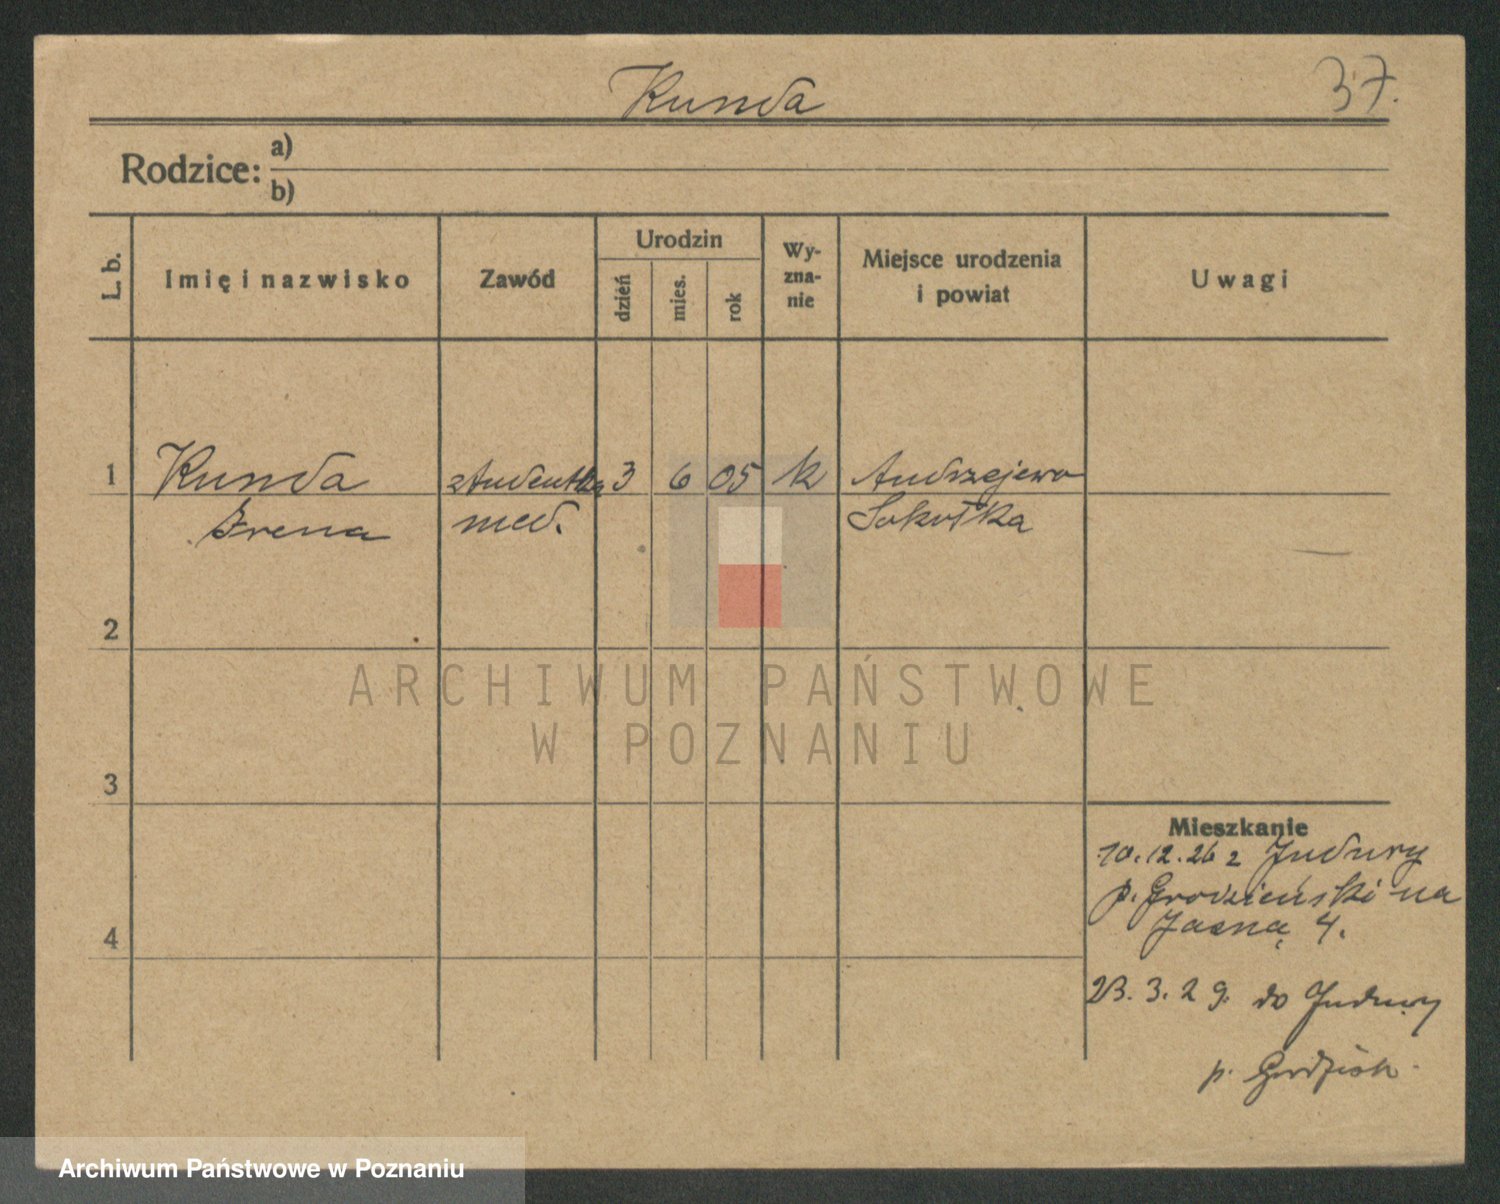 Kunda
37.
Rodzice: a)
b)
L. b.
Imię i nazwisko
Zawód
Urodzin
dzień
mies.
rok
Wy-
zna-
nie
Miejsce urodzenia
i powiat
Uwagi
1
Kunda
Irena
studentka
med.
3
6
05
k
Andrzejewo
Sokółka
2
3
4
Mieszkanie
10.12.26 z Indury
p. Grodzieński na
Jasną 4.
23.3.29. do Indury
p.
ARCHIWUM PAŃSTWOWE
W POZNANIU
Archiwum Państwowe w Poznaniu